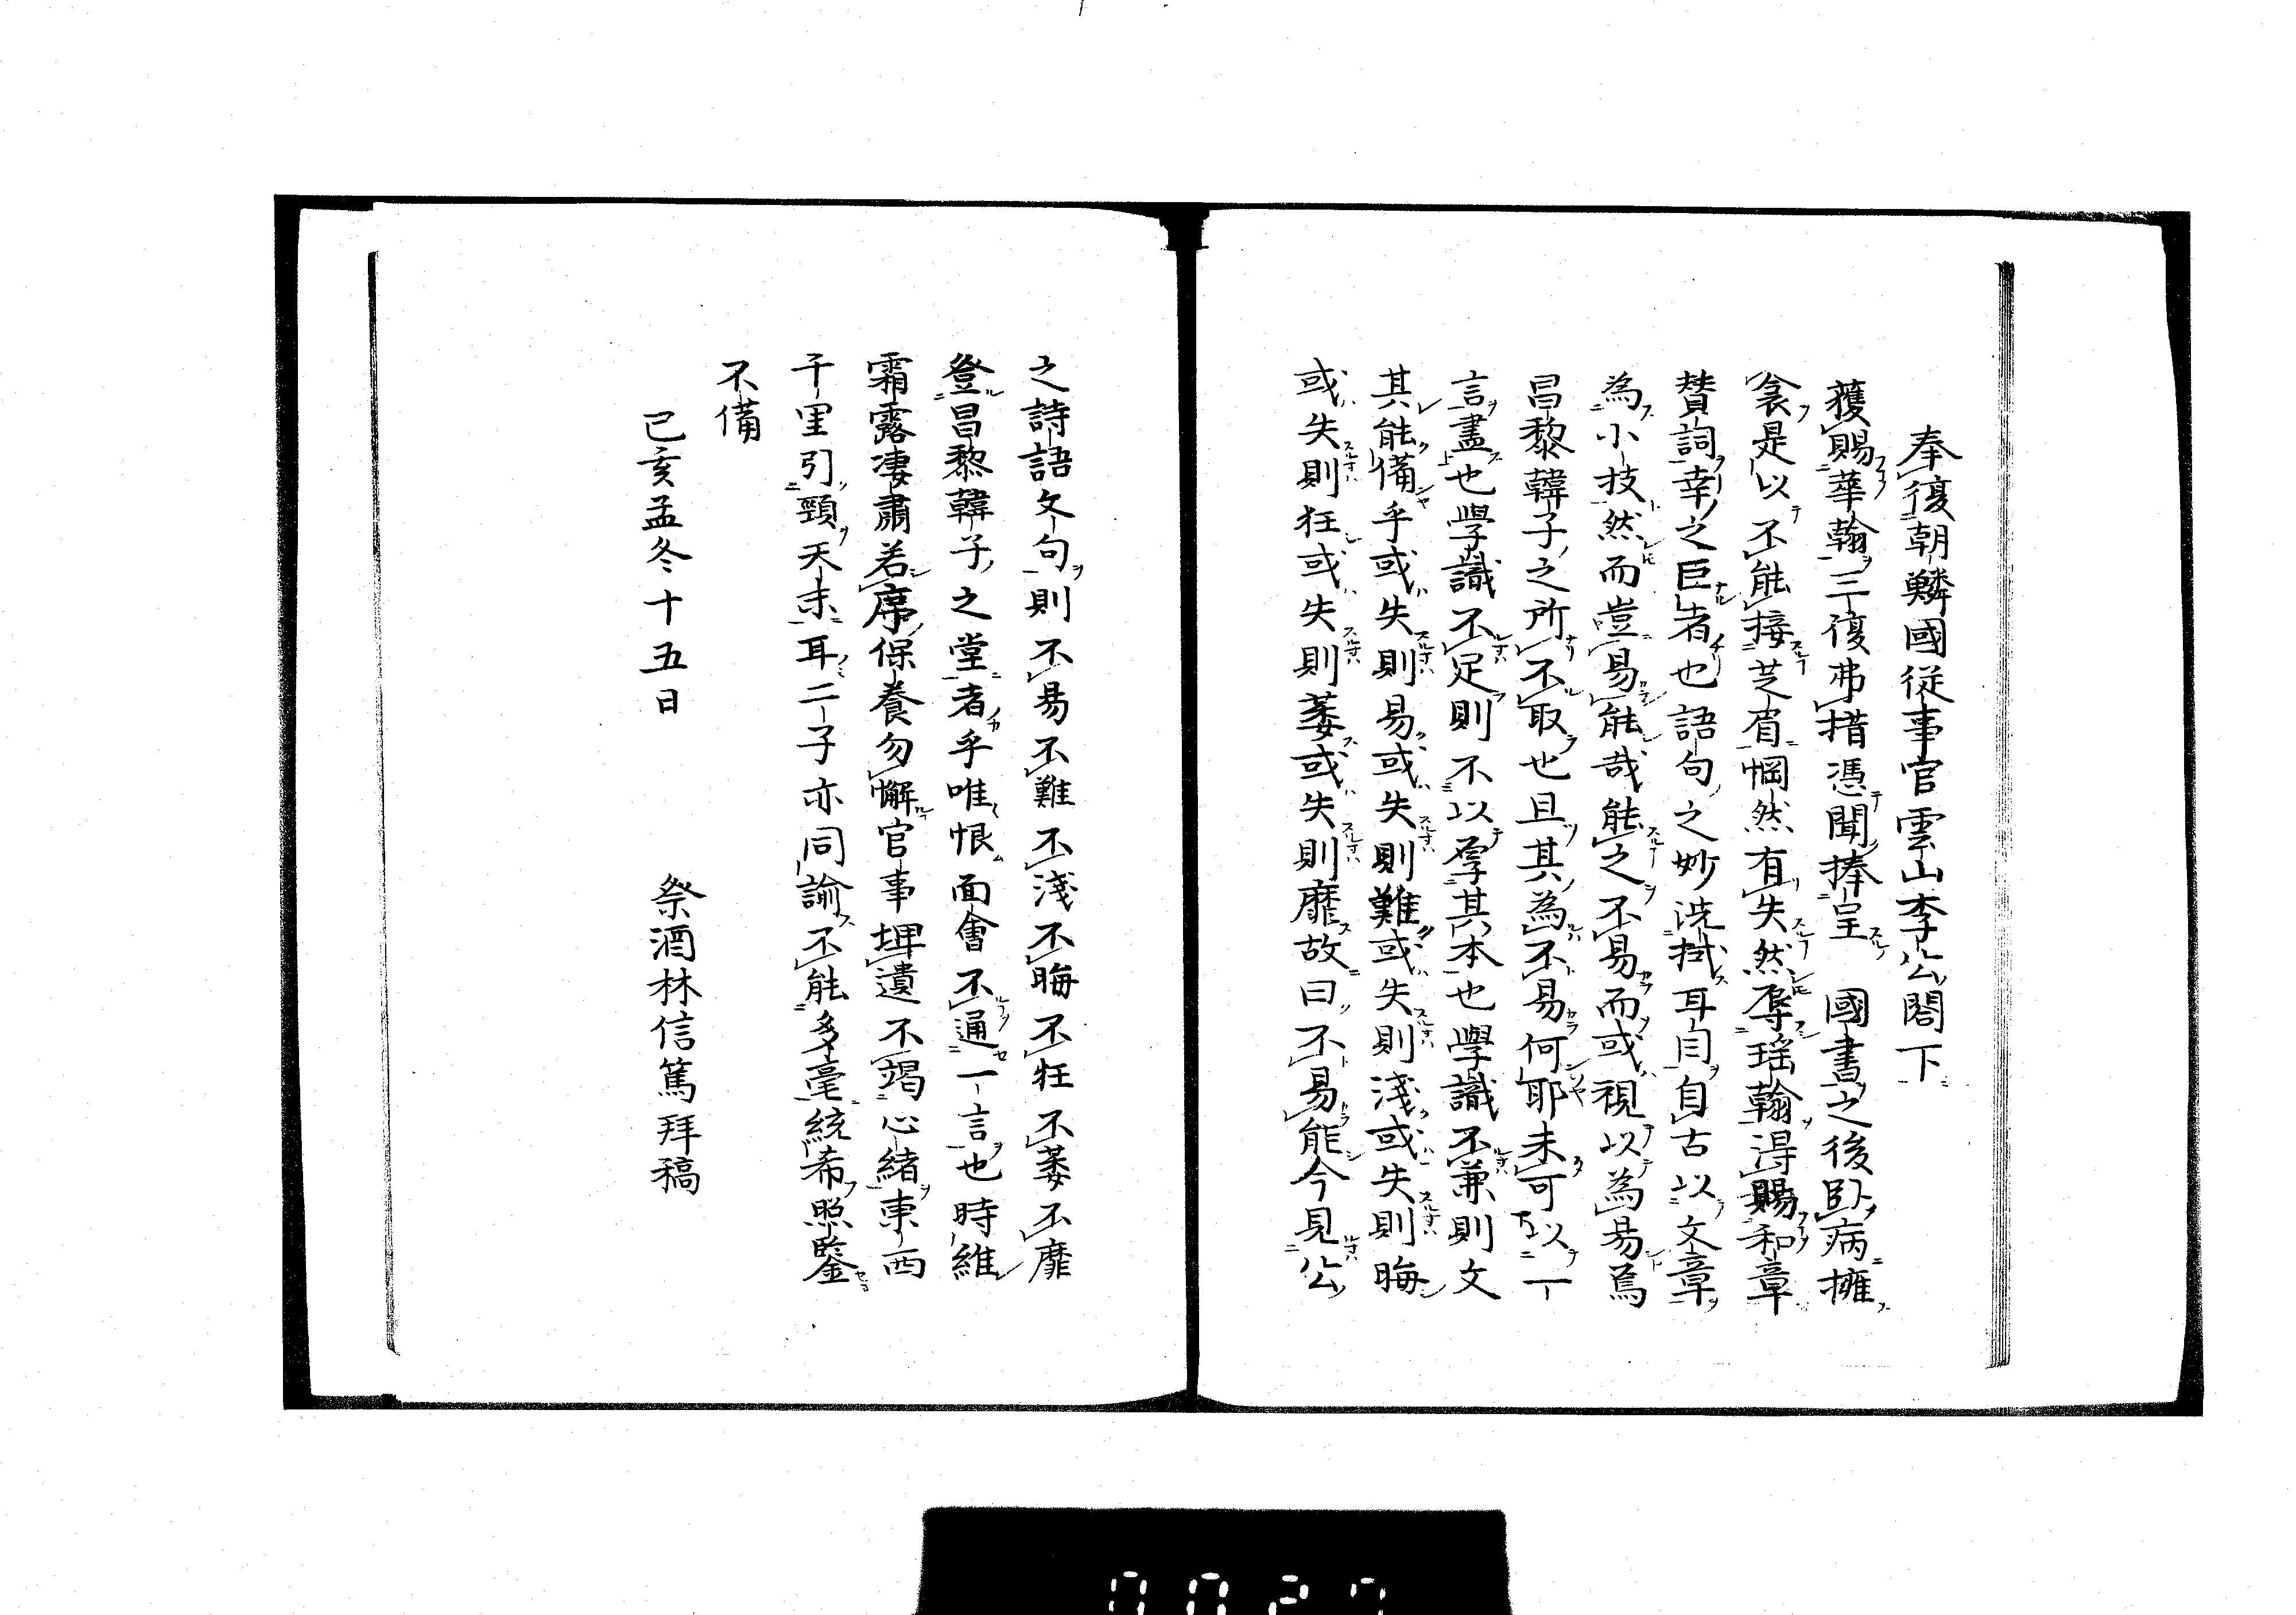 奉復朝鱗國従事官雲山李公閤下
獲賜華翰三復弗措憑聞捧呈　國書之後臥病擁
衾是以不能接芝眉惘然有失然辱瑤翰得賜和章
賛詞幸之巨者也語句之妙洗拭耳目自古以文章
為小技然而豈易能哉能之不易而或視以為易焉
昌黎韓子之所不取也且其為不易何耶未可以一
言盡也學識不足則不以厚其本也學識不兼則文
其能備乎或失則易或失則難或失則淺或失則晦
或失則狂或失則萎或失則靡故曰不易能今見公
之詩語文句則不易不難不淺不晦不狂不萎不靡
登昌黎韓子之堂者乎唯恨面會不通一言也時維
霜露凄肅若席保養勿懈官事埤遺不竭心緒東西
千里引頸天末耳二子亦同諭不能多毫統希照鑒
不備
己亥孟冬十五日　祭酒林信篤拜稿
0027